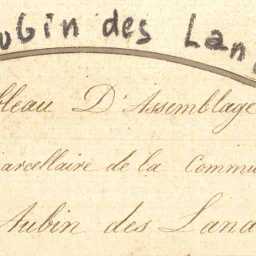 ubin des Lan
bleau D'Assemblage
arcellaire de la Commu
Aubin des Lana